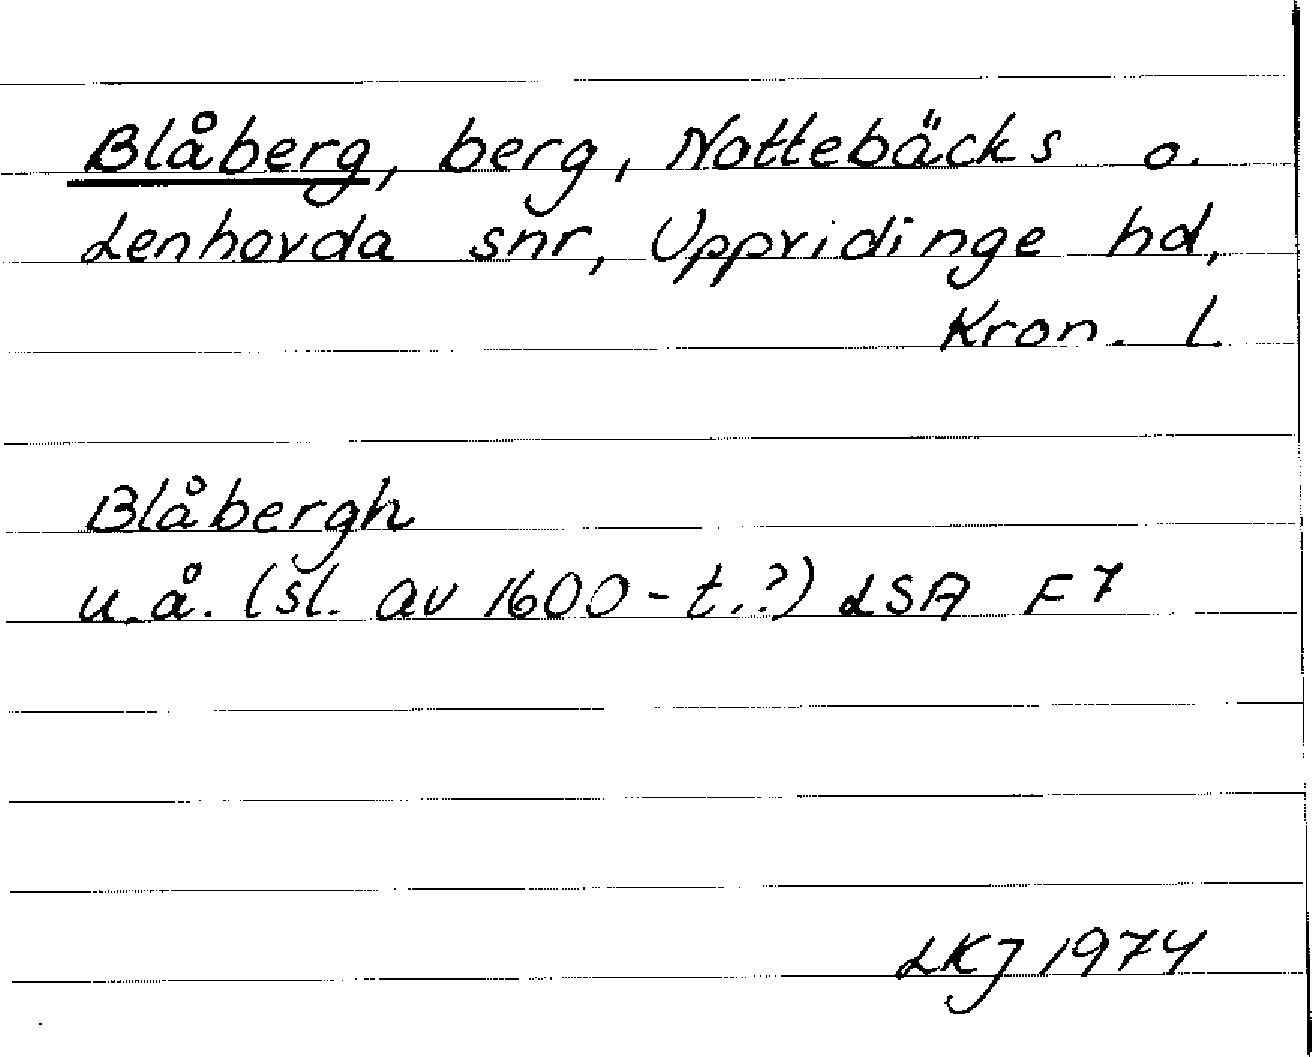 Blåberg, berg, Nottebäcks o.
Lenhovda snr, Uppvidinge hd,
Kron. l.
Blåbergh
u.å. (sl. av 1600-t.?) LSA F7
LKJ 1974